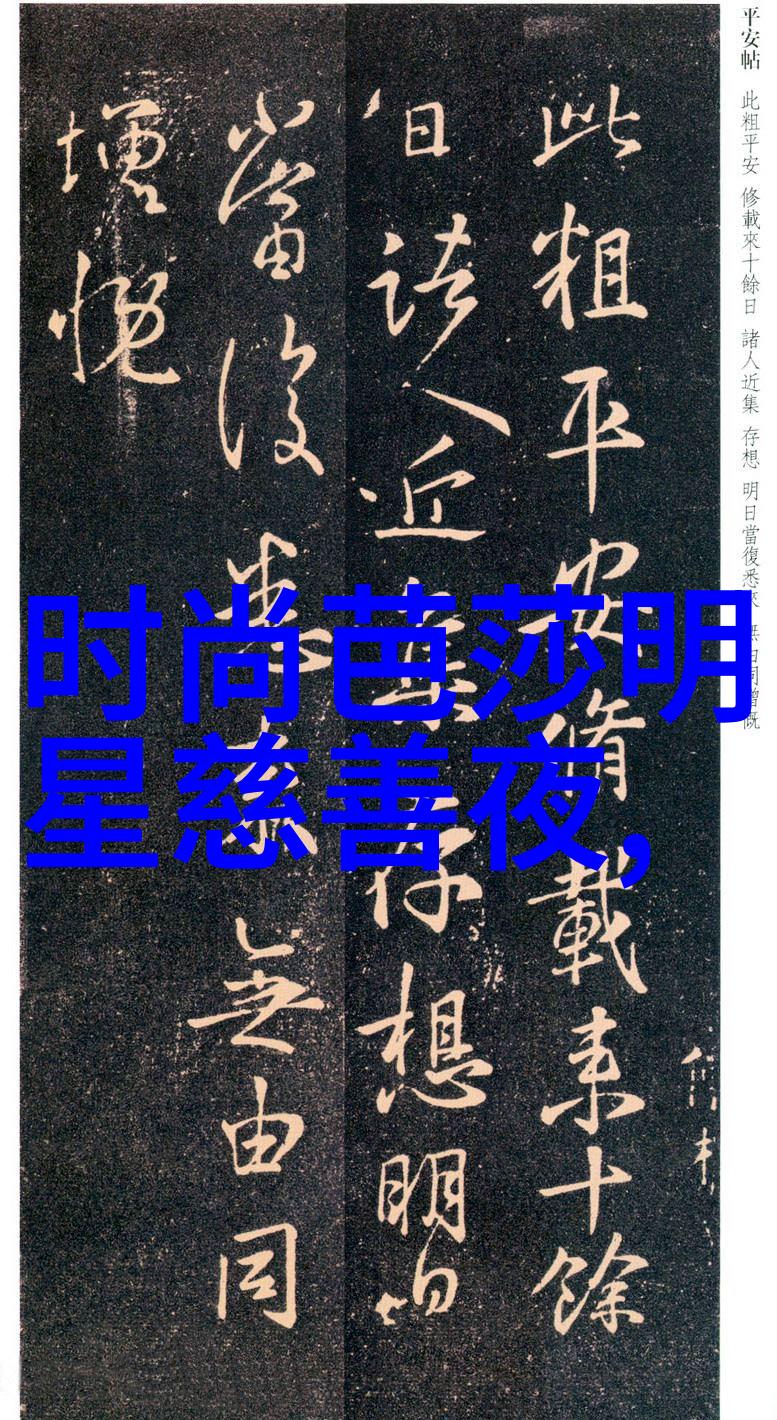 平安帖 此粗平安 修載來十餘日 諸人近集 存想 明日當復悉來 無由同增慨
此粗平安脩載来十餘
日諸人近集存想明日
當復悉来無由同
增慨
时尚芭莎明
星慈善夜,